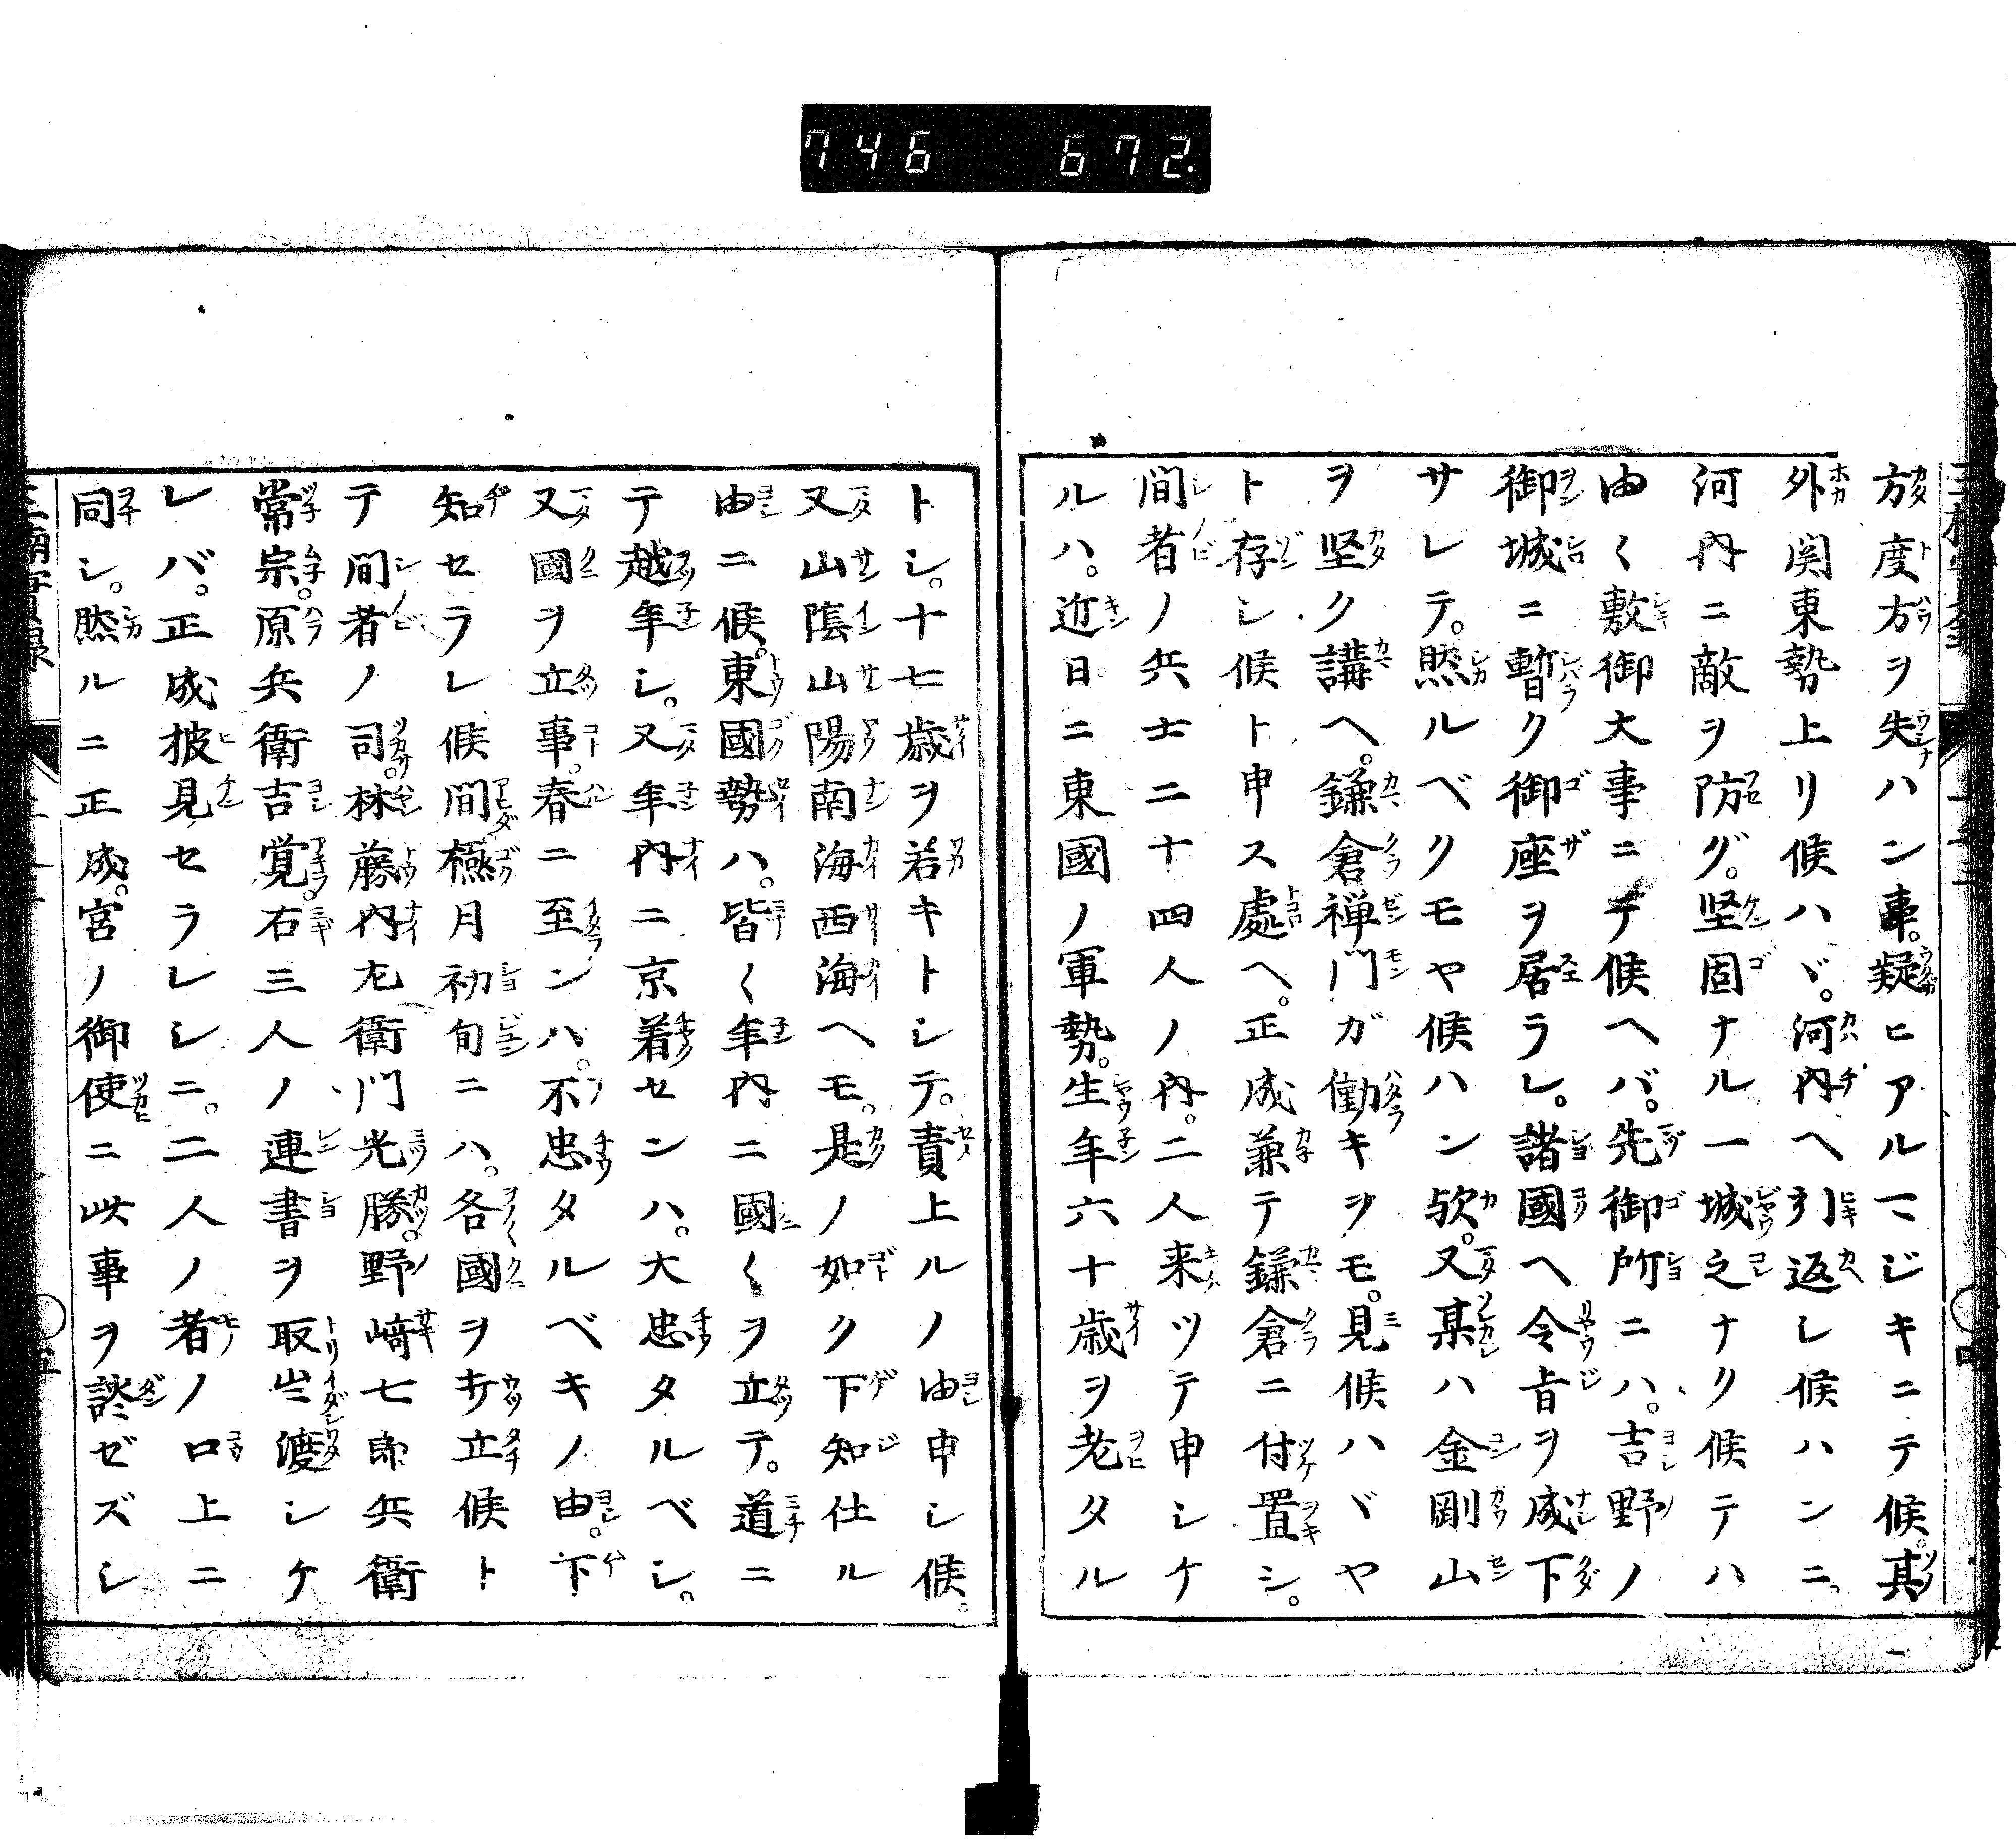 746 672.
方度方ヲ失ハン事。疑ヒアルマジキニテ候。其
外関東勢上リ候ハヾ。河内ヘ引返シ候ハンニ。
河内ニ敵ヲ防グ。堅固ナル一城之ナク候テハ
由〱敷御大事ニテ候ヘバ。先御所ニハ。吉野ノ
御城ニ暫ク御座ヲ居ラレ。諸國ヘ令旨ヲ成下
サレテ。然ルベクモヤ候ハン欤。又某ハ金剛山
ヲ堅ク講ヘ。鎌倉禅門ガ働キヲモ。見候ハヾヤ
ト存シ候ト申ス處ヘ。正成兼テ鎌倉ニ付置シ。
間者ノ兵士二十四人ノ内。二人来ツテ申シケ
ルハ。近日ニ東國ノ軍勢。生年六十歳ヲ老タル
トシ。十七歳ヲ若キトシテ。責上ルノ由申シ候。
又山陰山陽南海西海ヘモ。是ノ如ク下知仕ル
由ニ候。東國勢ハ。皆〱年内ニ國〱ヲ立テ。道ニ
テ越年シ。又年内ニ京着センハ。大忠タルベシ。
又國ヲ立事。春ニ至ンハ。不忠タルベキノ由。下
知セラレ候間極月初旬ニハ。各國ヲ打立候ト
テ間者ノ司。林藤内左衛門光勝。野﨑七郎兵衛
常宗。原兵衛吉覚。右三人ノ連書ヲ取出渡シケ
レバ。正成披見セラレシニ。二人ノ者ノ口上ニ
同シ。然ルニ正成。宮ノ御使ニ此事ヲ談ゼズシ